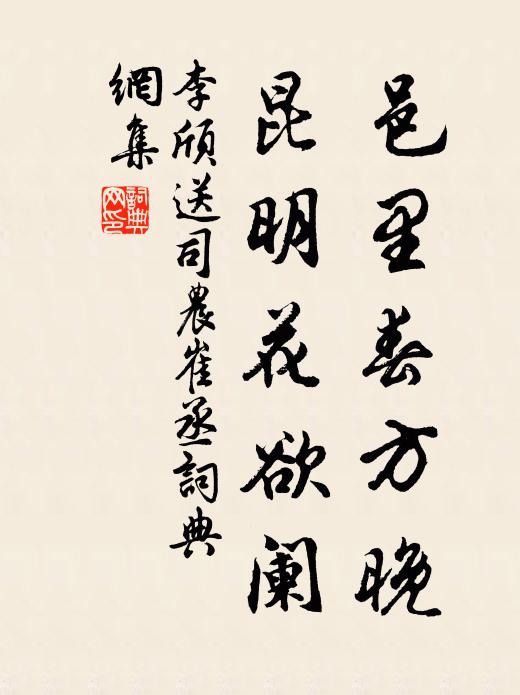 邑里春方晚
昆明花欲阑
李颀送司農崔丞詞典
網集
詞典
网印